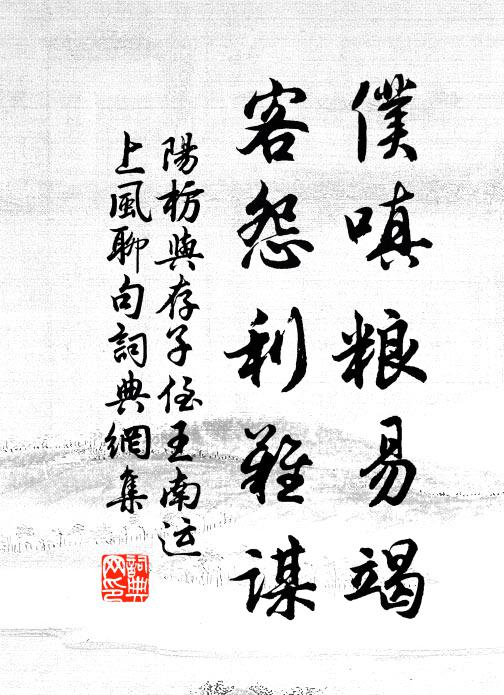 僕嗔粮易竭
客怨利難謀
陽枋與存子侄王南运
上風聊句詞典網集
詞典
网印